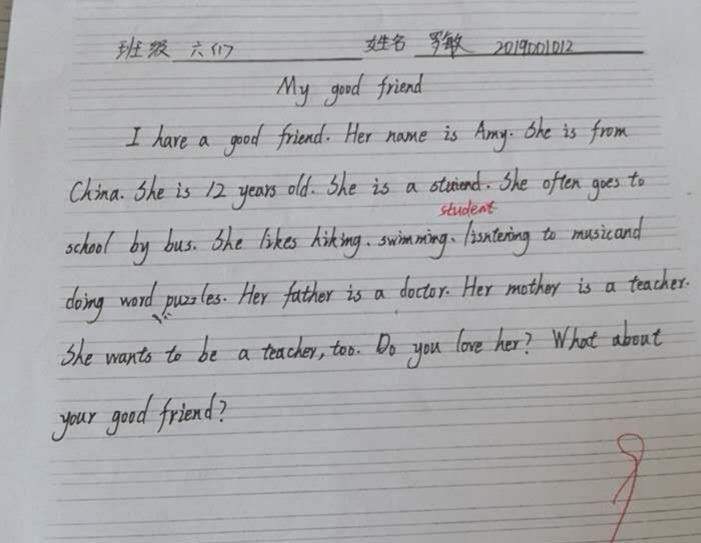 班级 六(1) 姓名 罗敏 2019001012
My good friend
I have a good friend. Her name is Amy. She is from
China. She is 12 years old. She is a stuiend. She often goes to
student
school by bus. She likes hiking、swimming、lisntering to musicand
doing word puzzles. Her father is a doctor. Her mother is a teacher.
She wants to be a teacher, too. Do you love her? What about
your good friend?